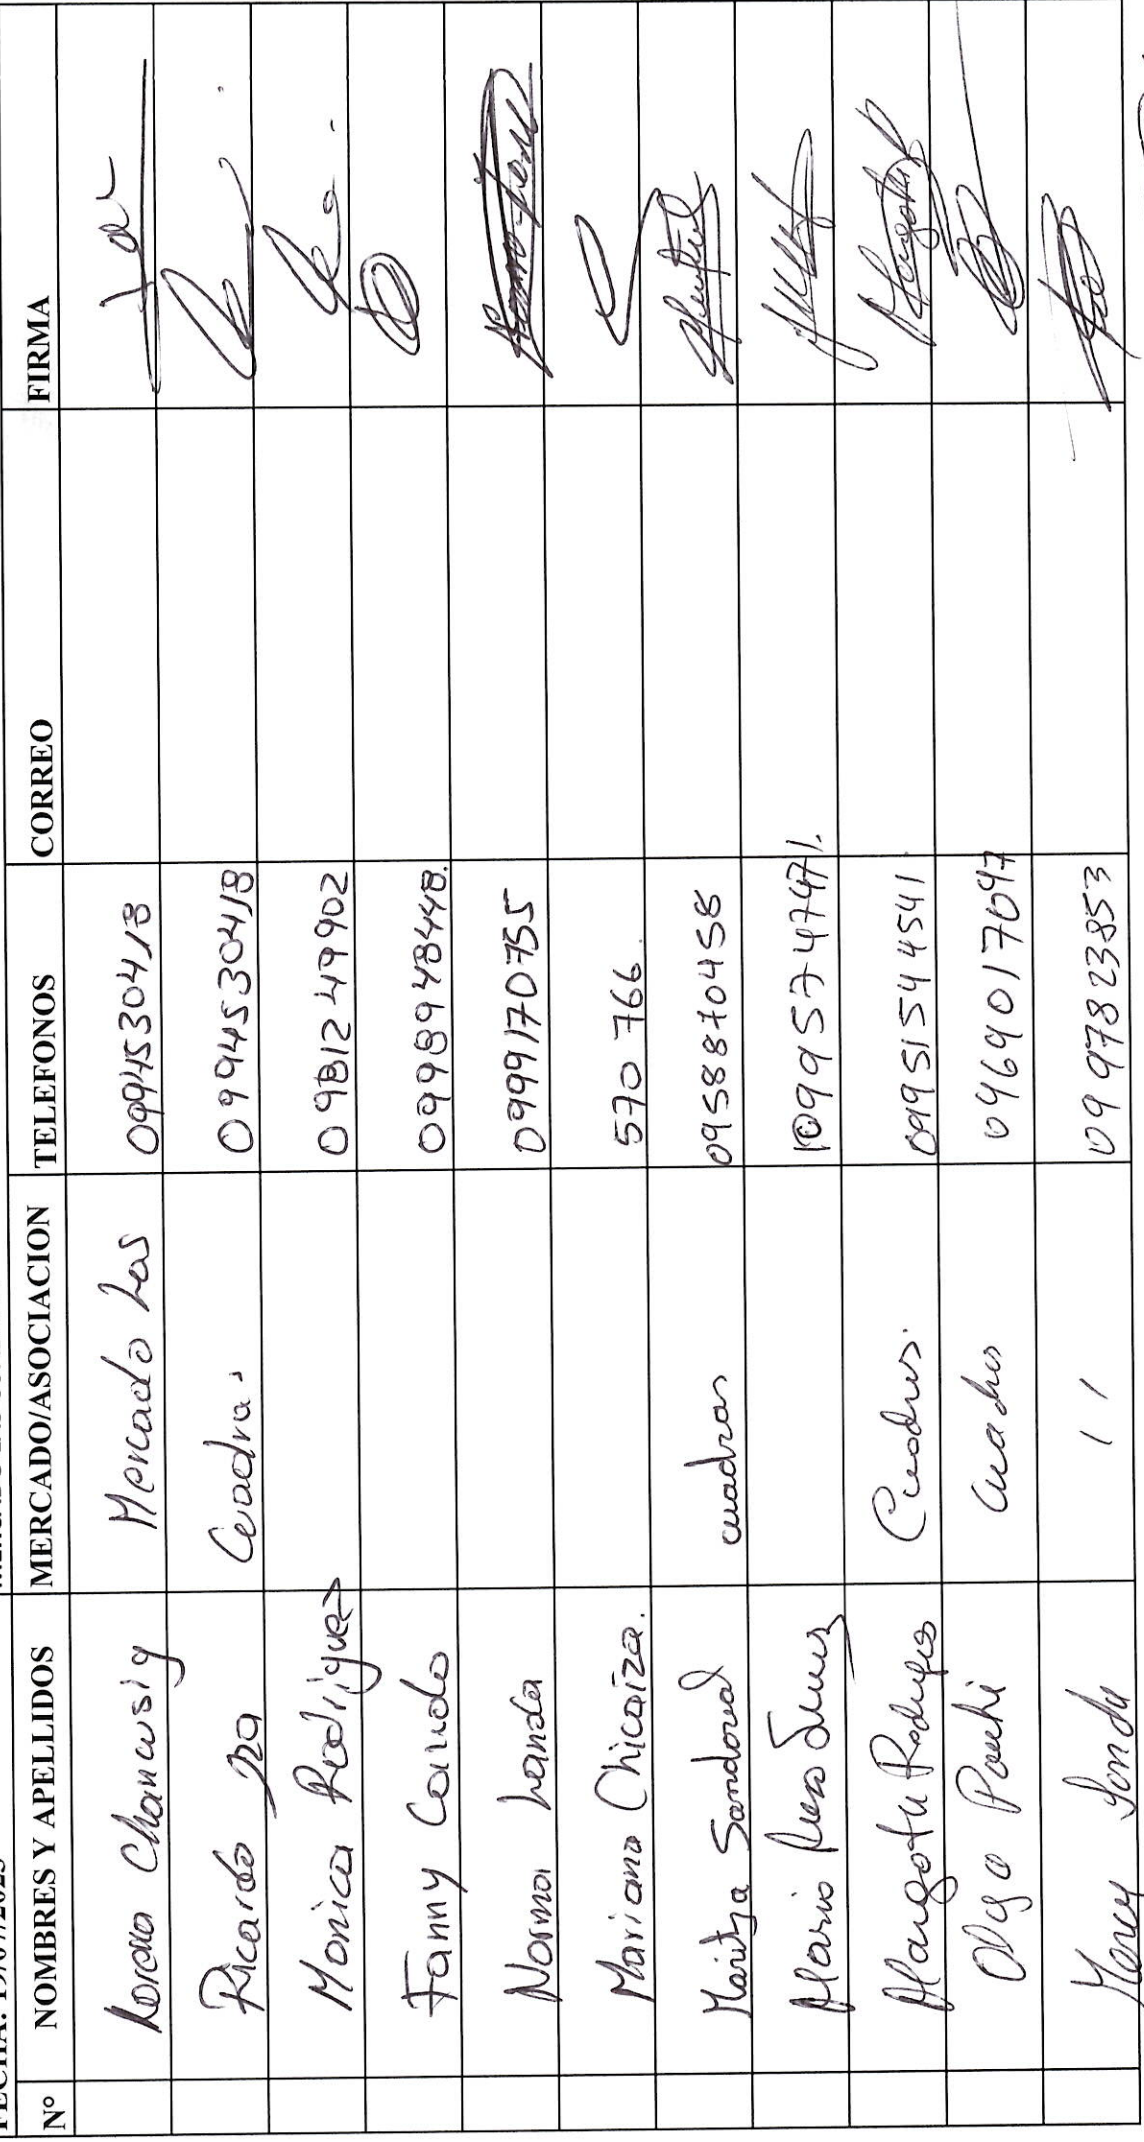 FECHA: 19/07/2023
N° NOMBRES Y APELLIDOS MERCADO/ASOCIACION TELEFONOS CORREO FIRMA
Lorena Chancusig Mercado Las 0994530418
Ricardo Cuadras 0994530418
Monica Rodriguez 0981249902
Fanny Caindo 0998948448.
Norma Landa 0999170755
Mariana Chicaiza. 570 766.
Maritza Sandoval cuadras 0958870458
Mario 0995747471.
Margoth Rodriges Cuadras. 09951544541
Olga Pauchi Cuadras 0469017047
Mercy Fonda 11 0997823853